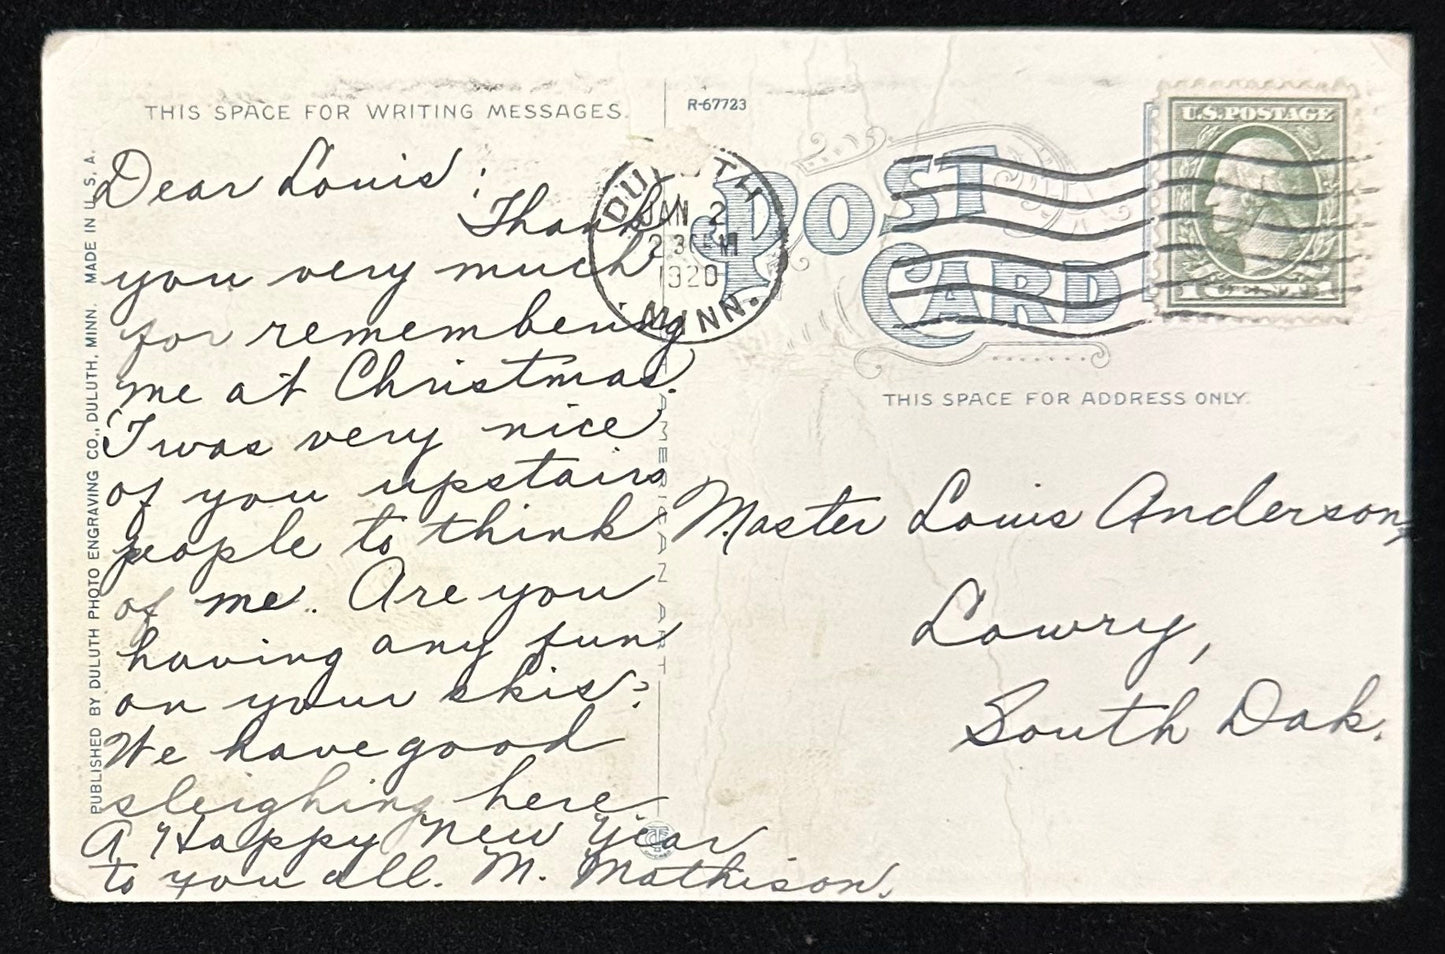 THIS SPACE FOR WRITING MESSAGES.
R-67723
POST
CARD
U.S. POSTAGE
DULUTH
JAN 2
1920
MINN.
THIS SPACE FOR ADDRESS ONLY.
PUBLISHED BY DULUTH PHOTO ENGRAVING CO., DULUTH, MINN. MADE IN U. S. A.
AMERICAN ART
Dear Louis:
Thank
you very much
for remembering
me at Christmas.
'Twas very nice
of you upstairs
people to think
of me. Are you
having any fun
on your skis?
We have good
sleighing here
A Happy New Year
to you all. M. Mathison.
Master Louis Anderson,
Lowry,
South Dak.